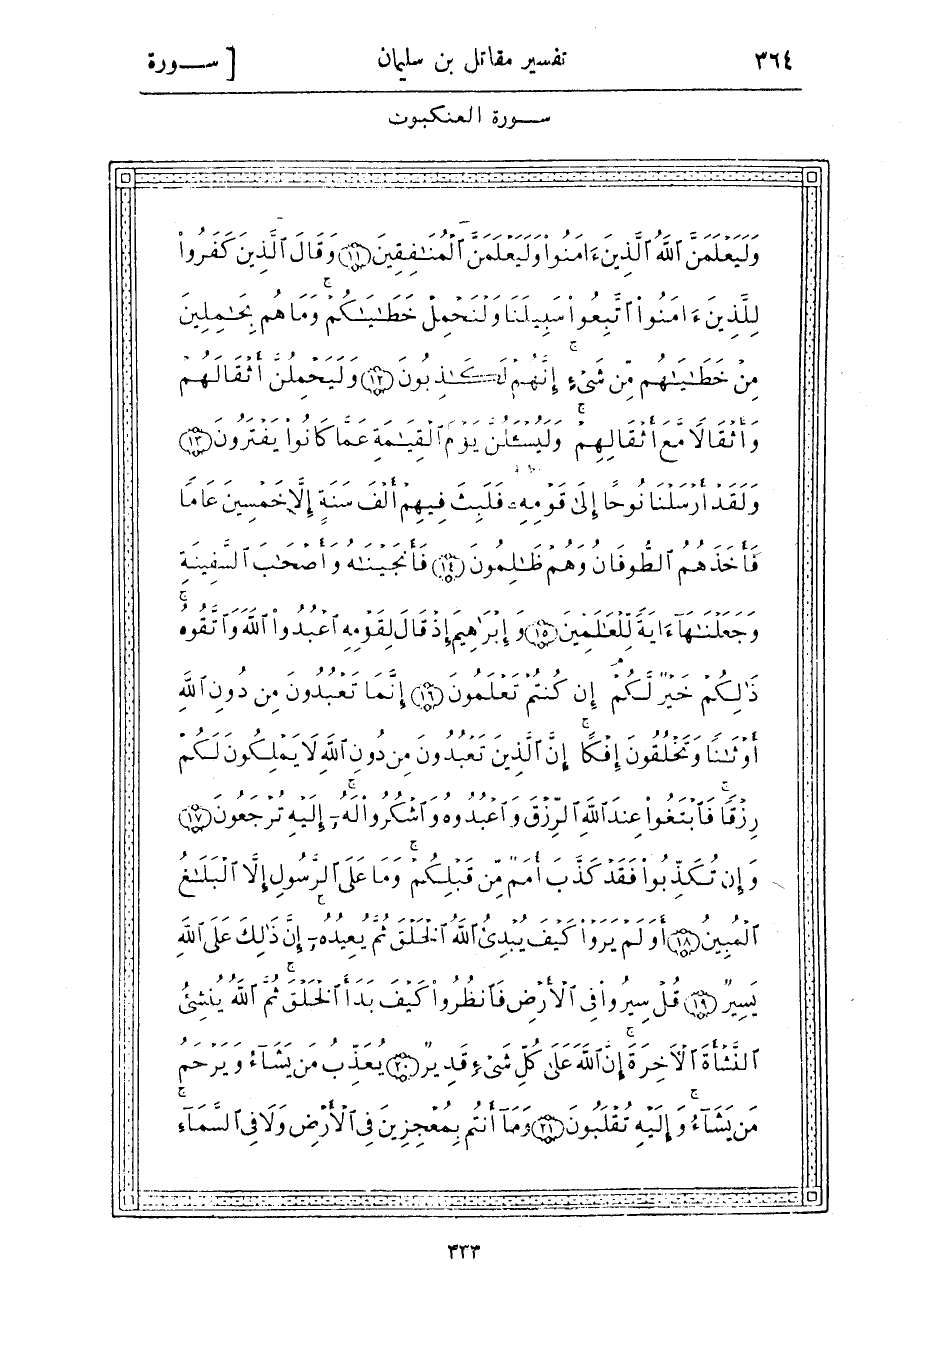 ٣٦٤ تفسير مقاتل بن سليمان [ ســـورة
ســـورة العنكبوت
وَلَيَعْلَمَنَّ ٱللَّهُ ٱلَّذِينَ ءَامَنُوا۟ وَلَيَعْلَمَنَّ ٱلْمُنَـٰفِقِينَ ﴿١١﴾ وَقَالَ ٱلَّذِينَ كَفَرُوا۟
لِلَّذِينَ ءَامَنُوا۟ ٱتَّبِعُوا۟ سَبِيلَنَا وَلْنَحْمِلْ خَطَـٰيَـٰكُمْ ۚ وَمَا هُم بِحَـٰمِلِينَ
مِنْ خَطَـٰيَـٰهُم مِّن شَىْءٍ ۖ إِنَّهُمْ لَكَـٰذِبُونَ ﴿١٢﴾ وَلَيَحْمِلُنَّ أَثْقَالَهُمْ
وَأَثْقَالًا مَّعَ أَثْقَالِهِمْ ۖ وَلَيُسْـَٔلُنَّ يَوْمَ ٱلْقِيَـٰمَةِ عَمَّا كَانُوا۟ يَفْتَرُونَ ﴿١٣﴾
وَلَقَدْ أَرْسَلْنَا نُوحًا إِلَىٰ قَوْمِهِۦ فَلَبِثَ فِيهِمْ أَلْفَ سَنَةٍ إِلَّا خَمْسِينَ عَامًا
فَأَخَذَهُمُ ٱلطُّوفَانُ وَهُمْ ظَـٰلِمُونَ ﴿١٤﴾ فَأَنجَيْنَـٰهُ وَأَصْحَـٰبَ ٱلسَّفِينَةِ
وَجَعَلْنَـٰهَآ ءَايَةً لِّلْعَـٰلَمِينَ ﴿١٥﴾ وَإِبْرَٰهِيمَ إِذْ قَالَ لِقَوْمِهِ ٱعْبُدُوا۟ ٱللَّهَ وَٱتَّقُوهُ ۖ
ذَٰلِكُمْ خَيْرٌ لَّكُمْ إِن كُنتُمْ تَعْلَمُونَ ﴿١٦﴾ إِنَّمَا تَعْبُدُونَ مِن دُونِ ٱللَّهِ
أَوْثَـٰنًا وَتَخْلُقُونَ إِفْكًا ۚ إِنَّ ٱلَّذِينَ تَعْبُدُونَ مِن دُونِ ٱللَّهِ لَا يَمْلِكُونَ لَكُمْ
رِزْقًا فَٱبْتَغُوا۟ عِندَ ٱللَّهِ ٱلرِّزْقَ وَٱعْبُدُوهُ وَٱشْكُرُوا۟ لَهُۥٓ ۖ إِلَيْهِ تُرْجَعُونَ ﴿١٧﴾
وَإِن تُكَذِّبُوا۟ فَقَدْ كَذَّبَ أُمَمٌ مِّن قَبْلِكُمْ ۖ وَمَا عَلَى ٱلرَّسُولِ إِلَّا ٱلْبَلَـٰغُ
ٱلْمُبِينُ ﴿١٨﴾ أَوَلَمْ يَرَوْا۟ كَيْفَ يُبْدِئُ ٱللَّهُ ٱلْخَلْقَ ثُمَّ يُعِيدُهُۥٓ ۚ إِنَّ ذَٰلِكَ عَلَى ٱللَّهِ
يَسِيرٌ ﴿١٩﴾ قُلْ سِيرُوا۟ فِى ٱلْأَرْضِ فَٱنظُرُوا۟ كَيْفَ بَدَأَ ٱلْخَلْقَ ۚ ثُمَّ ٱللَّهُ يُنشِئُ
ٱلنَّشْأَةَ ٱلْـَٔاخِرَةَ ۚ إِنَّ ٱللَّهَ عَلَىٰ كُلِّ شَىْءٍ قَدِيرٌ ﴿٢٠﴾ يُعَذِّبُ مَن يَشَآءُ وَيَرْحَمُ
مَن يَشَآءُ ۖ وَإِلَيْهِ تُقْلَبُونَ ﴿٢١﴾ وَمَآ أَنتُم بِمُعْجِزِينَ فِى ٱلْأَرْضِ وَلَا فِى ٱلسَّمَآءِ ۖ
٣٣٣